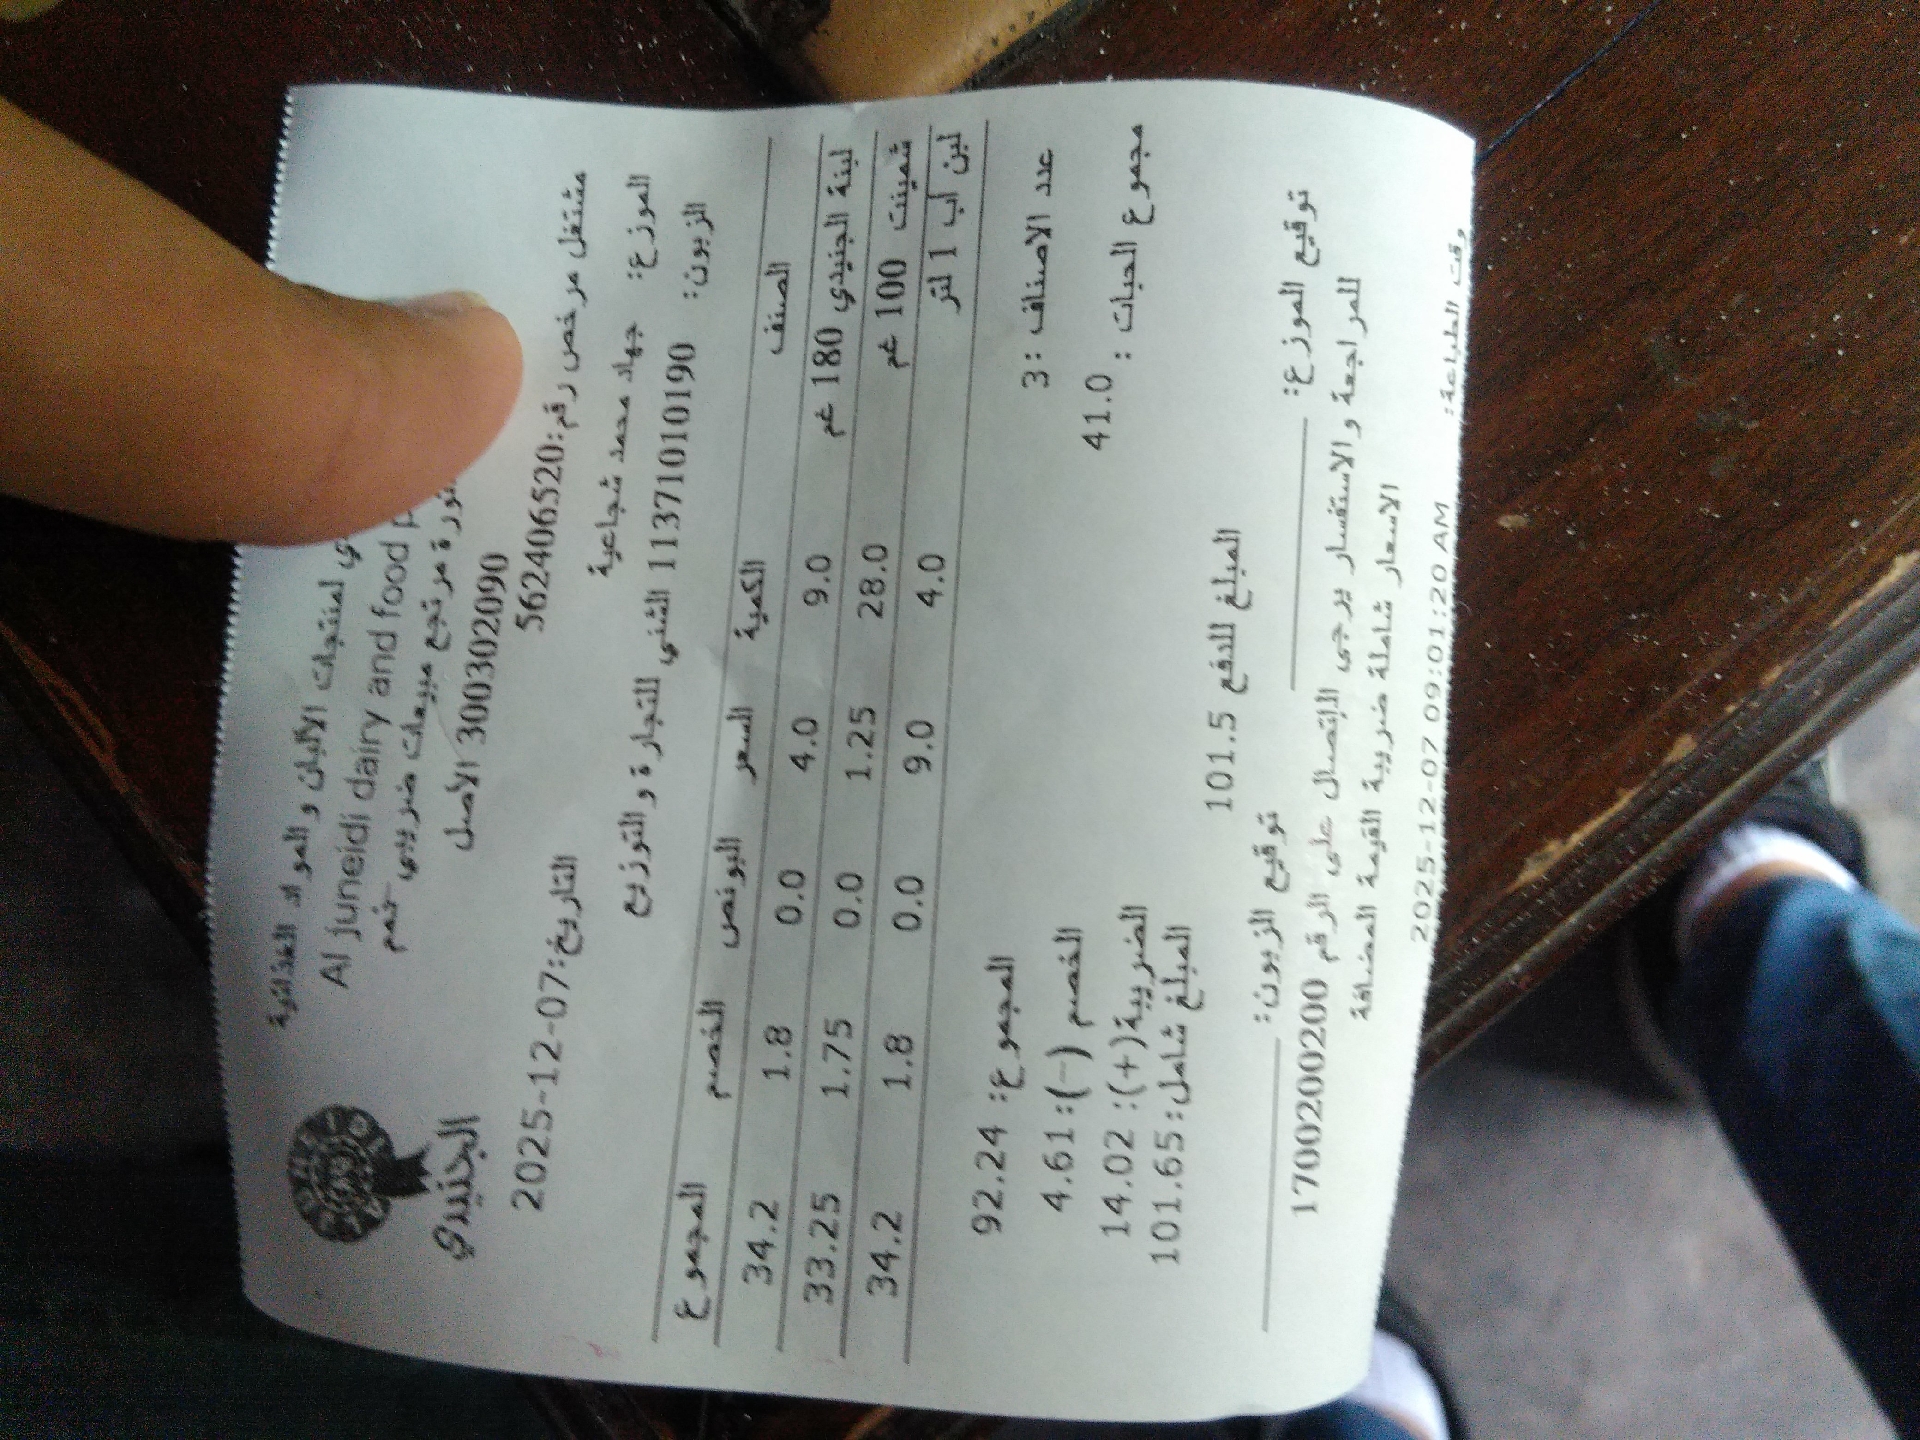 الجنيدي
ي لمنتجات الألبان و المواد الغذائية
Al juneidi dairy and food
مرتجع مبيعات ضريبي خصم
300302090 الاصل
مشتغل مرخص رقم:562406520
التاريخ:2025-12-07
الموزع: جهاد محمد شجاعية
الزبون: 1137101090 الثني للتجارة والتوزيع
الصنف الكمية السعر البونص الخصم المجموع
لبنة الجنيدي 180 غم 9.0 4.0 0.0 1.8 34.2
شمينت 100 غم 28.0 1.25 0.0 1.75 33.25
لبن اب 1 لتر 4.0 9.0 0.0 1.8 34.2
عدد الاصناف : 3
المجموع: 92.24
مجموع الحبات : 41.0
الخصم (-): 4.61
الضريبة(+): 14.02
المبلغ شامل: 101.65
المبلغ للدفع 101.5
توقيع الموزع:
توقيع الزبون:
للمراجعة والاستفسار يرجى الاتصال على الرقم 1700200200
الاسعار شاملة ضريبة القيمة المضافة
وقت الطباعة: 2025-12-07 09:01:20 AM